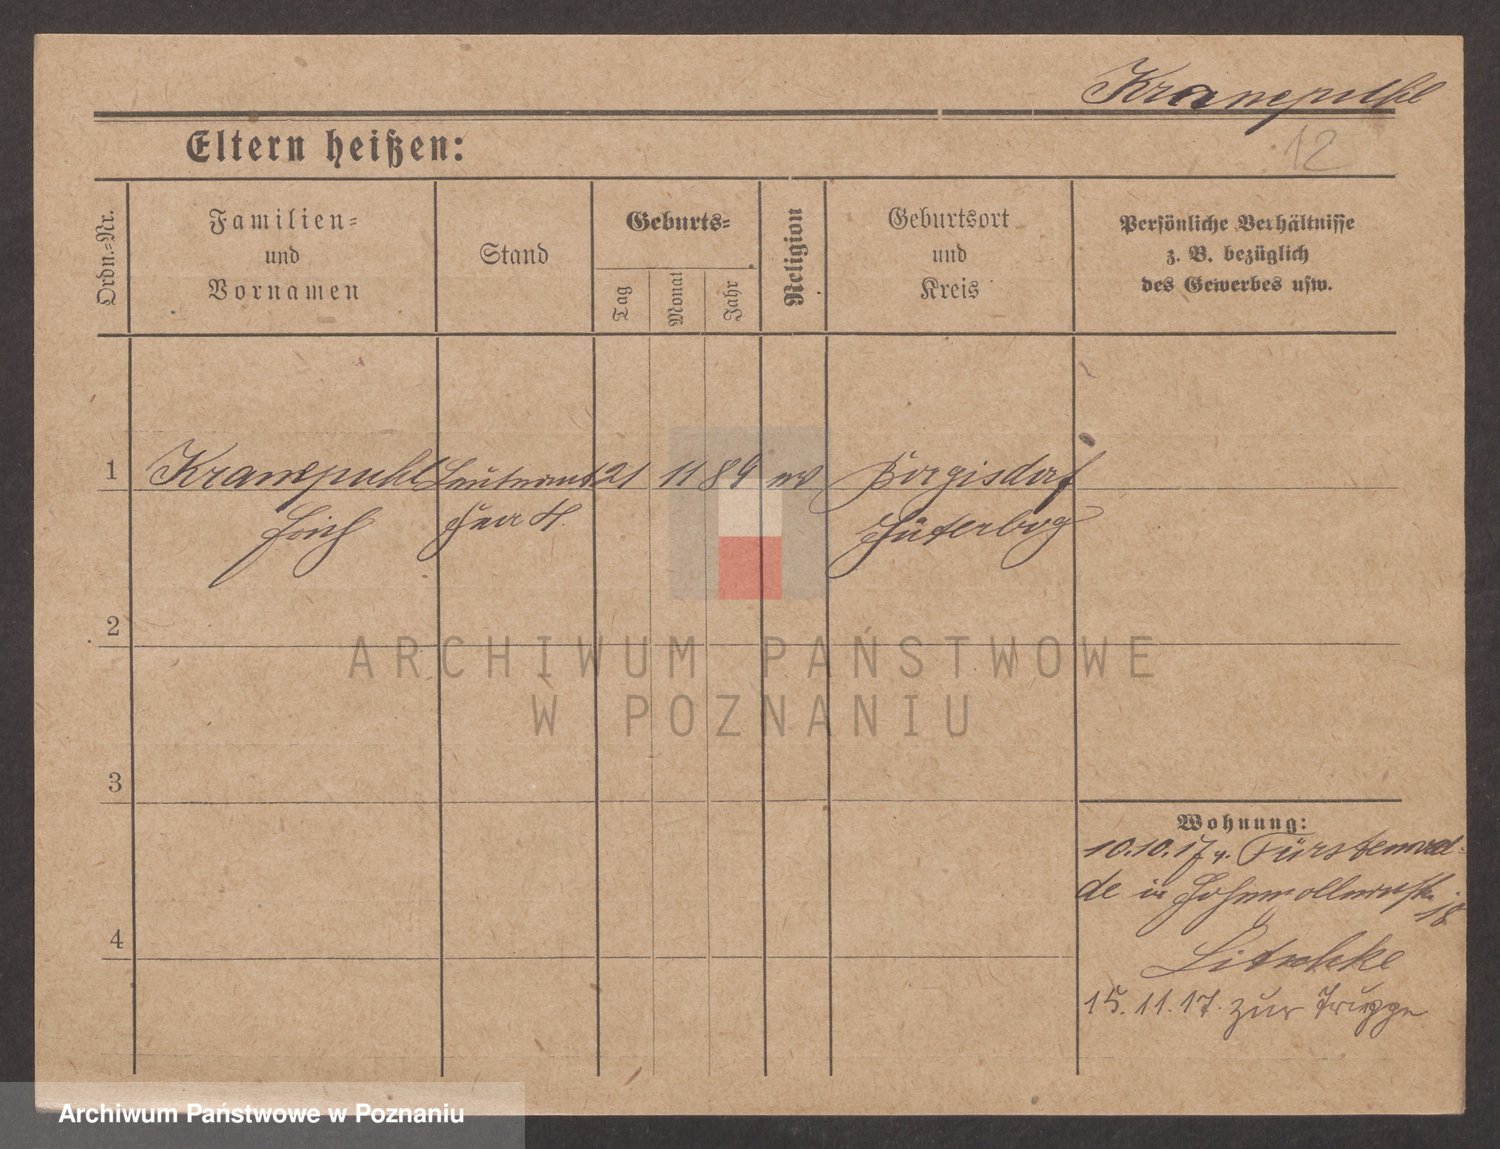 Kranepuhl
12
Eltern heißen:
Ordn.=Nr.
Familien=
und
Vornamen
Stand
Geburts=
Tag
Monat
Jahr
Religion
Geburtsort
und
Kreis
Persönliche Verhältnisse
z. B. bezüglich
des Gewerbes usw.
1
Kranepuhl Leutnant 21 11 89 ev Borgisdorf
Erich
Jüterbog
2
ARCHIWUM PAŃSTWOWE
W POZNANIU
3
Wohnung:
10.10.17 v. Fürstenwal-
de in Hohenzollernstr.
18
4
15.11.17. zur Truppe
Archiwum Państwowe w Poznaniu